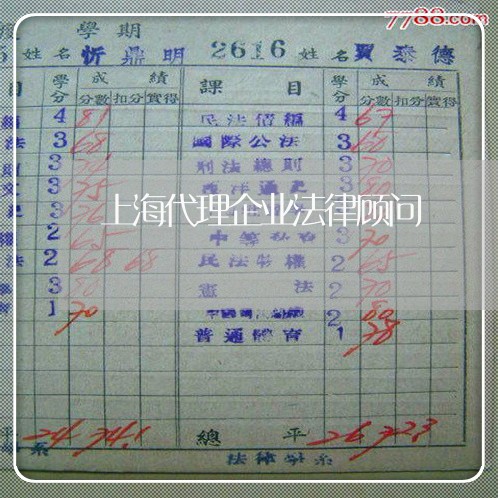 7788.com
學期
姓名 忻鼎明 2616 姓名 賈泰德
目 學分 成績 分數 扣分 實得 課目 學分 成績 分數 扣分 實得
4 81 民法債編 4 67
法 3 68 國際公法 3 60
3 刑法總則 3 70
3 75 西洋通史 3 80
上海代理企业法律顾问
3 76 3
2 65 3 70
法 2 68 68 民法物權 2 65
3 80 憲法 2 70
1 70 2 80
普通體育 1 78
平 24 74.1 總平 26 72.3
系 法律學系